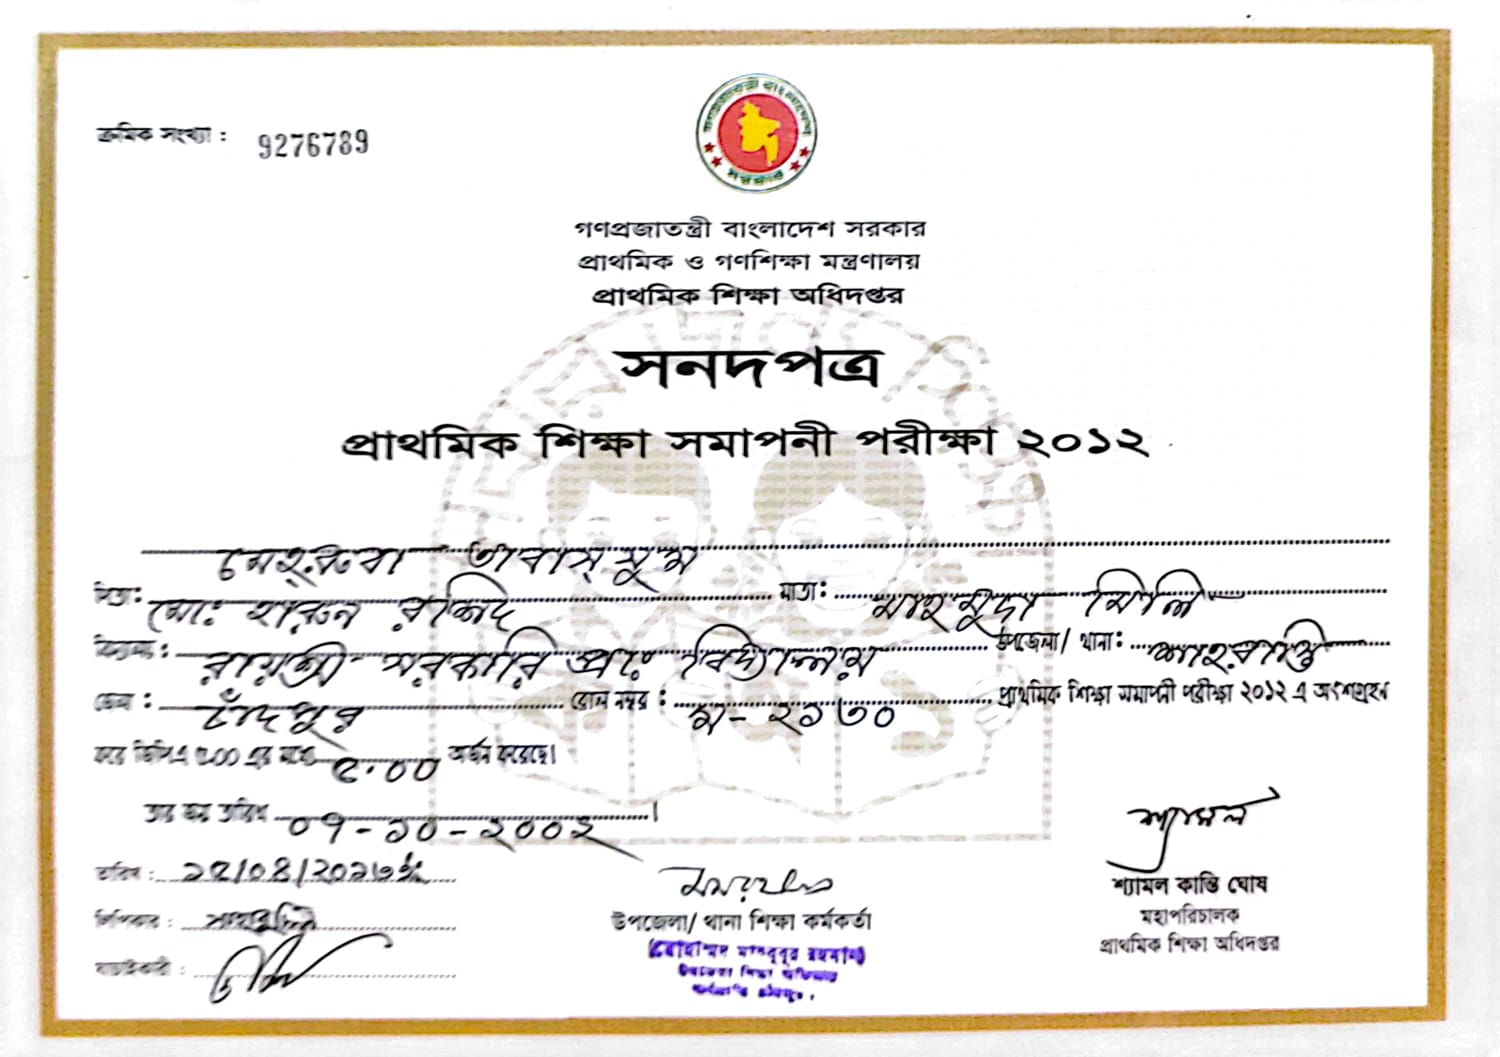 ক্রমিক সংখ্যা : 9276789
গণপ্রজাতন্ত্রী বাংলাদেশ সরকার
গণপ্রজাতন্ত্রী বাংলাদেশ সরকার
প্রাথমিক ও গণশিক্ষা মন্ত্রণালয়
প্রাথমিক শিক্ষা অধিদপ্তর
সনদপত্র
প্রাথমিক শিক্ষা সমাপনী পরীক্ষা ২০১২
মেহ্‌রুবা তাবাস্‌সুম
পিতা: মোঃ হারুন রশিদ মাতা: মাহমুদা মিলি
বিদ্যালয়: রায়শ্রী সরকারি প্রাঃ বিদ্যালয় উপজেলা/ থানা: শাহরাস্তি
জেলা : চাঁদপুর রোল নম্বর : ম- ২১৩০ প্রাথমিক শিক্ষা সমাপনী পরীক্ষা ২০১২ এ অংশগ্রহন
করে জিপিএ ৫.০০ এর মধ্যে ৫.০০ অর্জন করেছে।
তার জন্ম তারিখ ০৭-১০-২০০২ ।
তারিখ : ১৫/০৪/২০১৩
লিপিকার :
যাচাইকারী :
উপজেলা/ থানা শিক্ষা কর্মকর্তা
(মোহাম্মদ মাহবুবুর রহমান)
উপজেলা শিক্ষা অফিসার
শ্যামল
শ্যামল কান্তি ঘোষ
মহাপরিচালক
প্রাথমিক শিক্ষা অধিদপ্তর